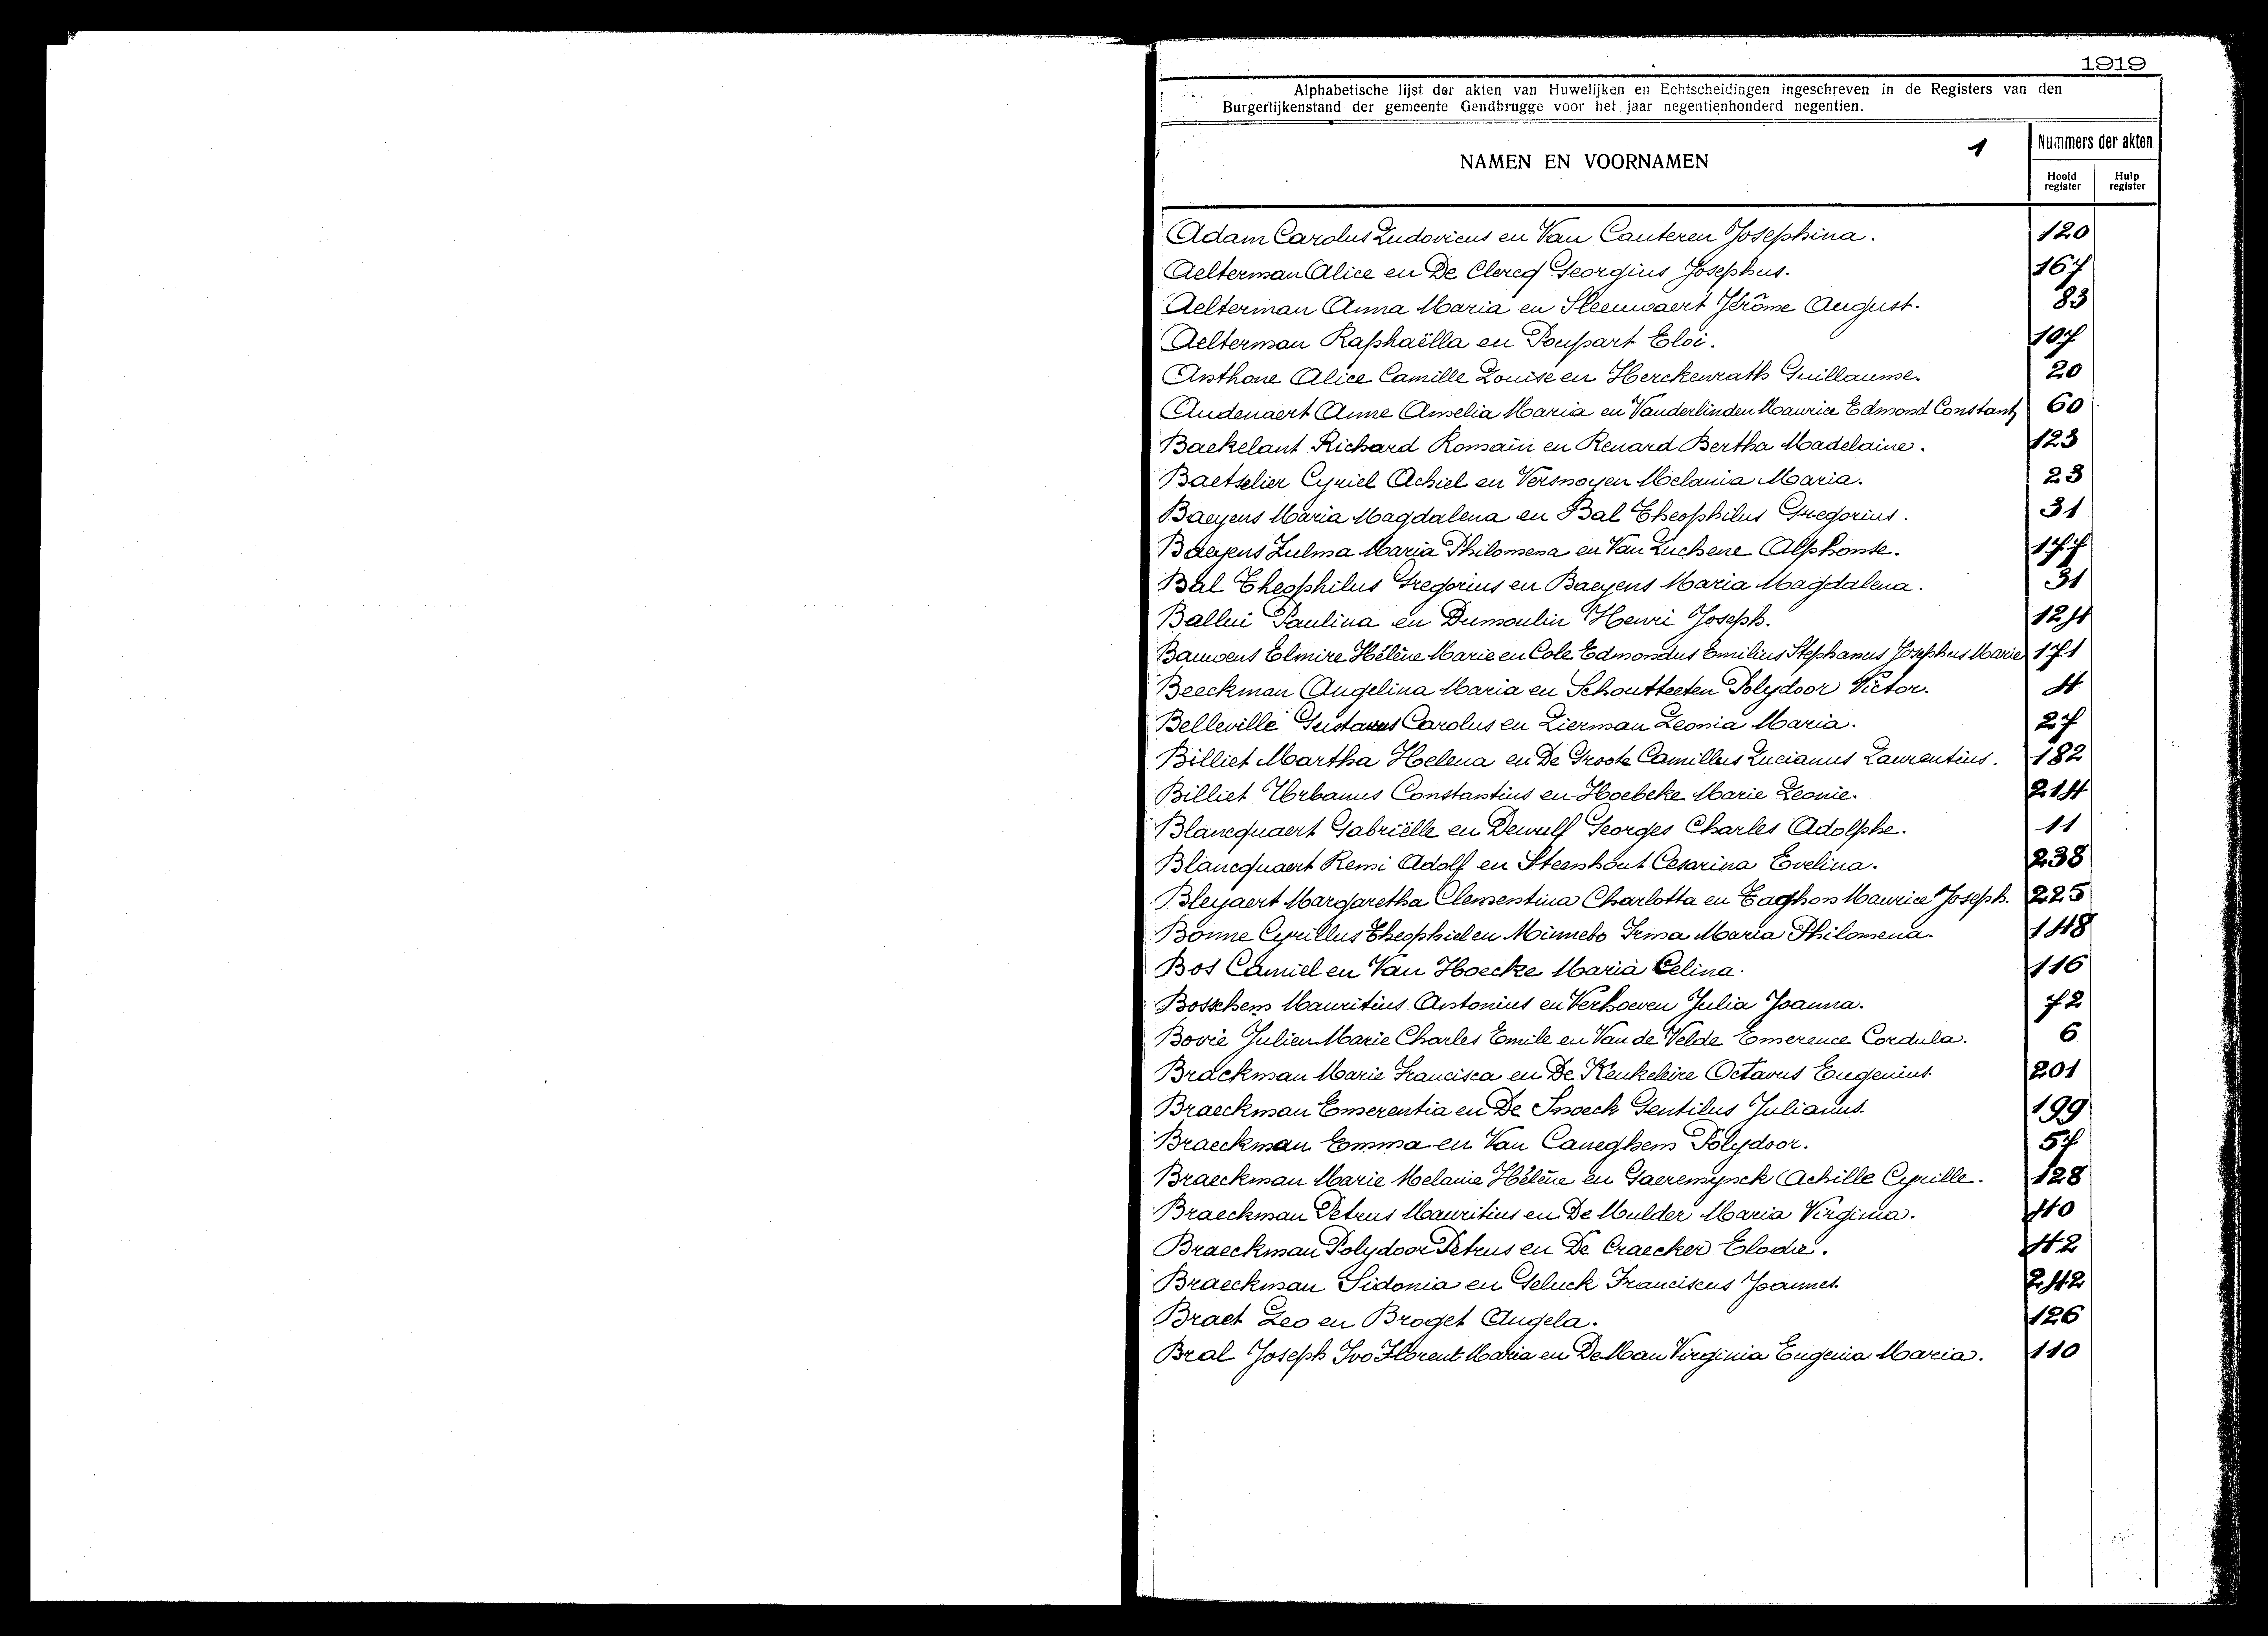 1919
Alphabetische lijst der akten van Huwelijken en Echtscheidingen ingeschreven in de Registers van den
Burgerlijkenstand der gemeente Gendbrugge voor het jaar negentienhonderd negentien.
NAMEN EN VOORNAMEN 1 Nummers der akten
Hoofd register Hulp register
Adam Carolus Ludovicus en Van Canteren Josephina. 120
Aelterman Alice en De Clercq Georgius Josephus. 167
Aelterman Anna Maria en Sleeuwaert Jérôme August. 83
Aelterman Raphaëlla en Poupart Eloi. 107
Anthone Alice Camille Louise en Herckenrath Guillaume. 20
Audenaert Anne Amelia Maria en Vanderlinden Maurice Edmond Constant 60
Baekelant Richard Romain en Renard Bertha Madelaine. 123
Baetselier Cyriel Achiel en Vernoyen Melania Maria. 23
Baeyens Maria Magdalena en Bal Theophilus Gregorius. 31
Baeyens Zulma Maria Philomena en Van Luchene Alphonse. 177
Bal Theophilus Gregorius en Baeyens Maria Magdalena. 31
Ballui Paulina en Dumoulin Henri Joseph. 124
Bauwens Elmire Hélène Marie en Cole Edmondus Emilius Stephanus Josephus Marie 171
Beeckman Angelina Maria en Schoutteeten Polydoor Victor. 4
Belleville Gustavus Carolus en Lierman Leonia Maria. 27
Billiet Martha Helena en De Groote Camillus Lucianus Laurentius. 182
Billiet Urbanus Constantius en Hoebeke Marie Leonie. 214
Blancquaert Gabriëlle en Dewulf Georges Charles Adolphe. 11
Blancquaert Remi Adolf en Steenhout Cesarina Evelina. 238
Bleyaert Margaretha Clementina Charlotta en Taghon Maurice Joseph. 225
Bonne Cyrillus Theophiel en Minnebo Irma Maria Philomena. 148
Bos Camiel en Van Hoecke Maria Celina. 116
Bosschem Mauritius Antonius en Verhoeven Julia Joanna. 72
Bovie Julien Marie Charles Emile en Van de Velde Emerence Cordula. 6
Brackman Marie Francisca en De Keukeleire Octavus Eugenius. 201
Braeckman Emerentia en De Snoeck Gentilus Julianus. 199
Braeckman Emma en Van Caneghem Polydoor. 57
Braeckman Marie Melanie Hélène en Gaeremynck Achille Cyrille. 128
Braeckman Petrus Mauritius en De Mulder Maria Virginia. 40
Braeckman Polydoor Petrus en De Craecker Elodie. 42
Braeckman Sidonia en Geluck Franciscus Joannes. 242
Braet Leo en Broget Angela. 126
Bral Joseph Ivo Florent Maria en De Man Virginia Eugenia Maria. 110